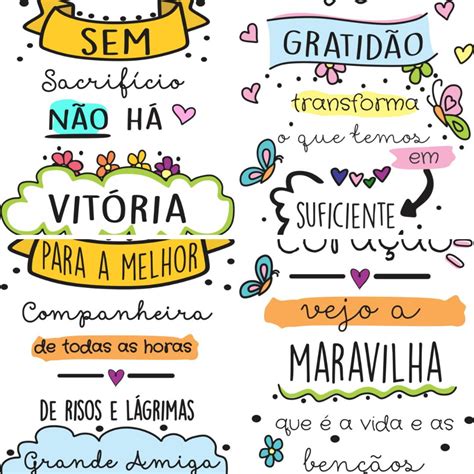 SEM
Sacrifício
NÃO HÁ
VITÓRIA
GRATIDÃO
transforma
o que temos
em
SUFICIENTE
PARA A MELHOR
Companheira
de todas as horas
DE RISOS E LÁGRIMAS
Grande Amiga
vejo a
MARAVILHA
que é a vida e as
bençãos